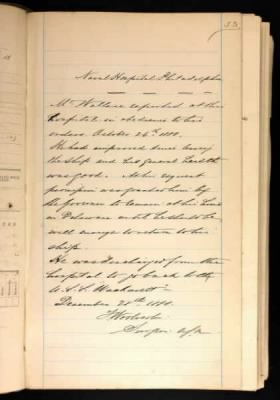 53.
Naval Hospital Philadelphia
Mr Wallace reported at this
hospital in obedience to his
orders October 26th 1880.
He had improved since leaving
the ship and his general health
was good. At his request
permission was granted him by
the Governor to remain at his home
in Delaware until he should be
well enough to return to his
ship.
He was discharged from the
hospital to go back to the
U.S.S. Wachusett
December 28th 1880.
Surgeon U.S.N.